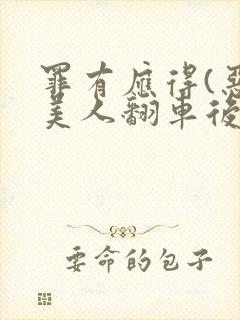 罪有應得(惡
美人翻車後
要命的包子